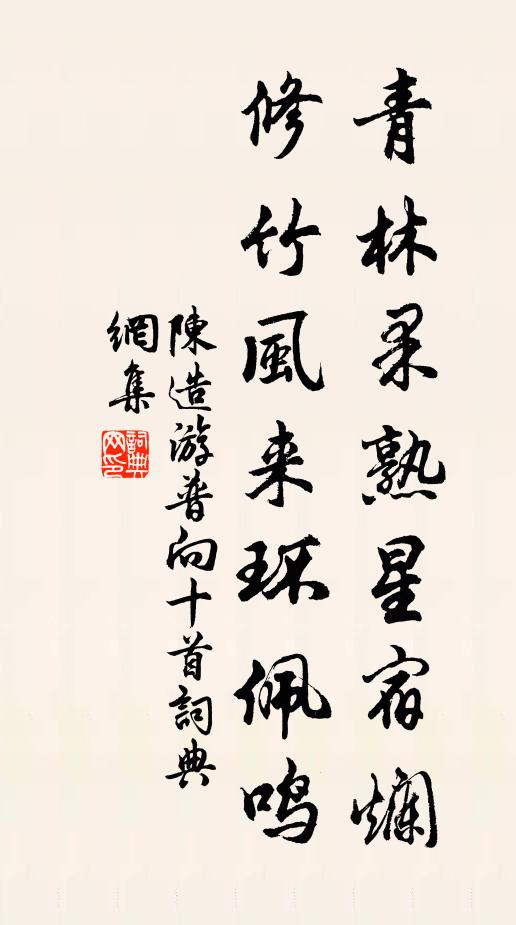 青林果熟星宿爛
修竹風来环佩鸣
陳造游普向十首詞典
網集
詞典